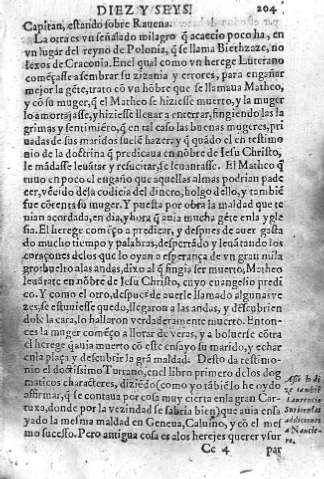 DIEZ Y SEYS. 204
Capitan, estando sobre Rauena.
La otra es vn señalado milagro q̃ acaecio poco ha, en
vn lugar del reyno de Polonia, q̃ se llama Biethzaze, no
lexos de Craconia. En el qual como vn herege Luterano
començasse a sembrar su zizania y errores, para engañar
mejor la gẽte, trato cõ vn hõbre que se llamaua Matheo,
y cõ su muger, q̃ el Matheo se hiziesse muerto, y la muger
lo amortajasse, y hiziesse lleuar a enterrar, fingiendo las la
grimas y sentimiẽto, q̃ en tal caso las buenas mugeres, pri
uadas de sus maridos suelẽ hazer, y q̃ quãdo el en testimo
nio de la doctrina q̃ predicaua en nõbre de Iesu Christo,
le mãdasse leuãtar y resucitar, se leuantasse. El Matheo q̃
nuuo en poco el engaño que aquellas almas podrian pade
cer, vẽcido de la codicia del dinero, holgo dello, y tambiẽ
fue cõtenta su muger. Y puesta por obra la maldad que te
nian acordada, en dia, y hora q̃ auia mucha gẽte en la ygle
sia. El herege comẽço a predicar, y despues de auer gasta
do mucho tiempo y palabras, despertãdo y leuãtando los
coraçones de los que lo oyan a esperança de vn gran mila
gro: buelto a las andas, dixo al q̃ fingia ser muerto, Matheo
leuãtate en nõbre de Iesu Christo, cuyo euangelio predi
co. Y como el otro, despues de auerle llamado algunas ve
zes, se estuuiesse quedo, llegaron a las andas, y descubrien
dole la cara, lo hallaron verdaderamente muerto. Enton-
ces la muger comẽço a llorar de veras, y a boluerse cõtra
el herege, q̃ auia muerto cõ este ensayo su marido, y echar
en la plaça y descubrir la grã maldad. Desto da testimo-
nio el doctissimo Turiano, en el libro primero de los dog
maticos characteres, diziẽdo (como yo tãbiẽ lo he oydo
affirmar, q̃ se contaua por cosa muy cierta en la gran Car-
tuxa, donde por la vezindad se sabria bien) que auia ensa
yado la mesma maldad en Geneua, Caluino, y cõ el mes-
mo sucesso. Pero antigua cosa es a los herejes querer vsur
Cc 4 par
Assi lo di
ze tambiẽ
Laurencio
Surio en las
addiciones
a Naucle-
ro.